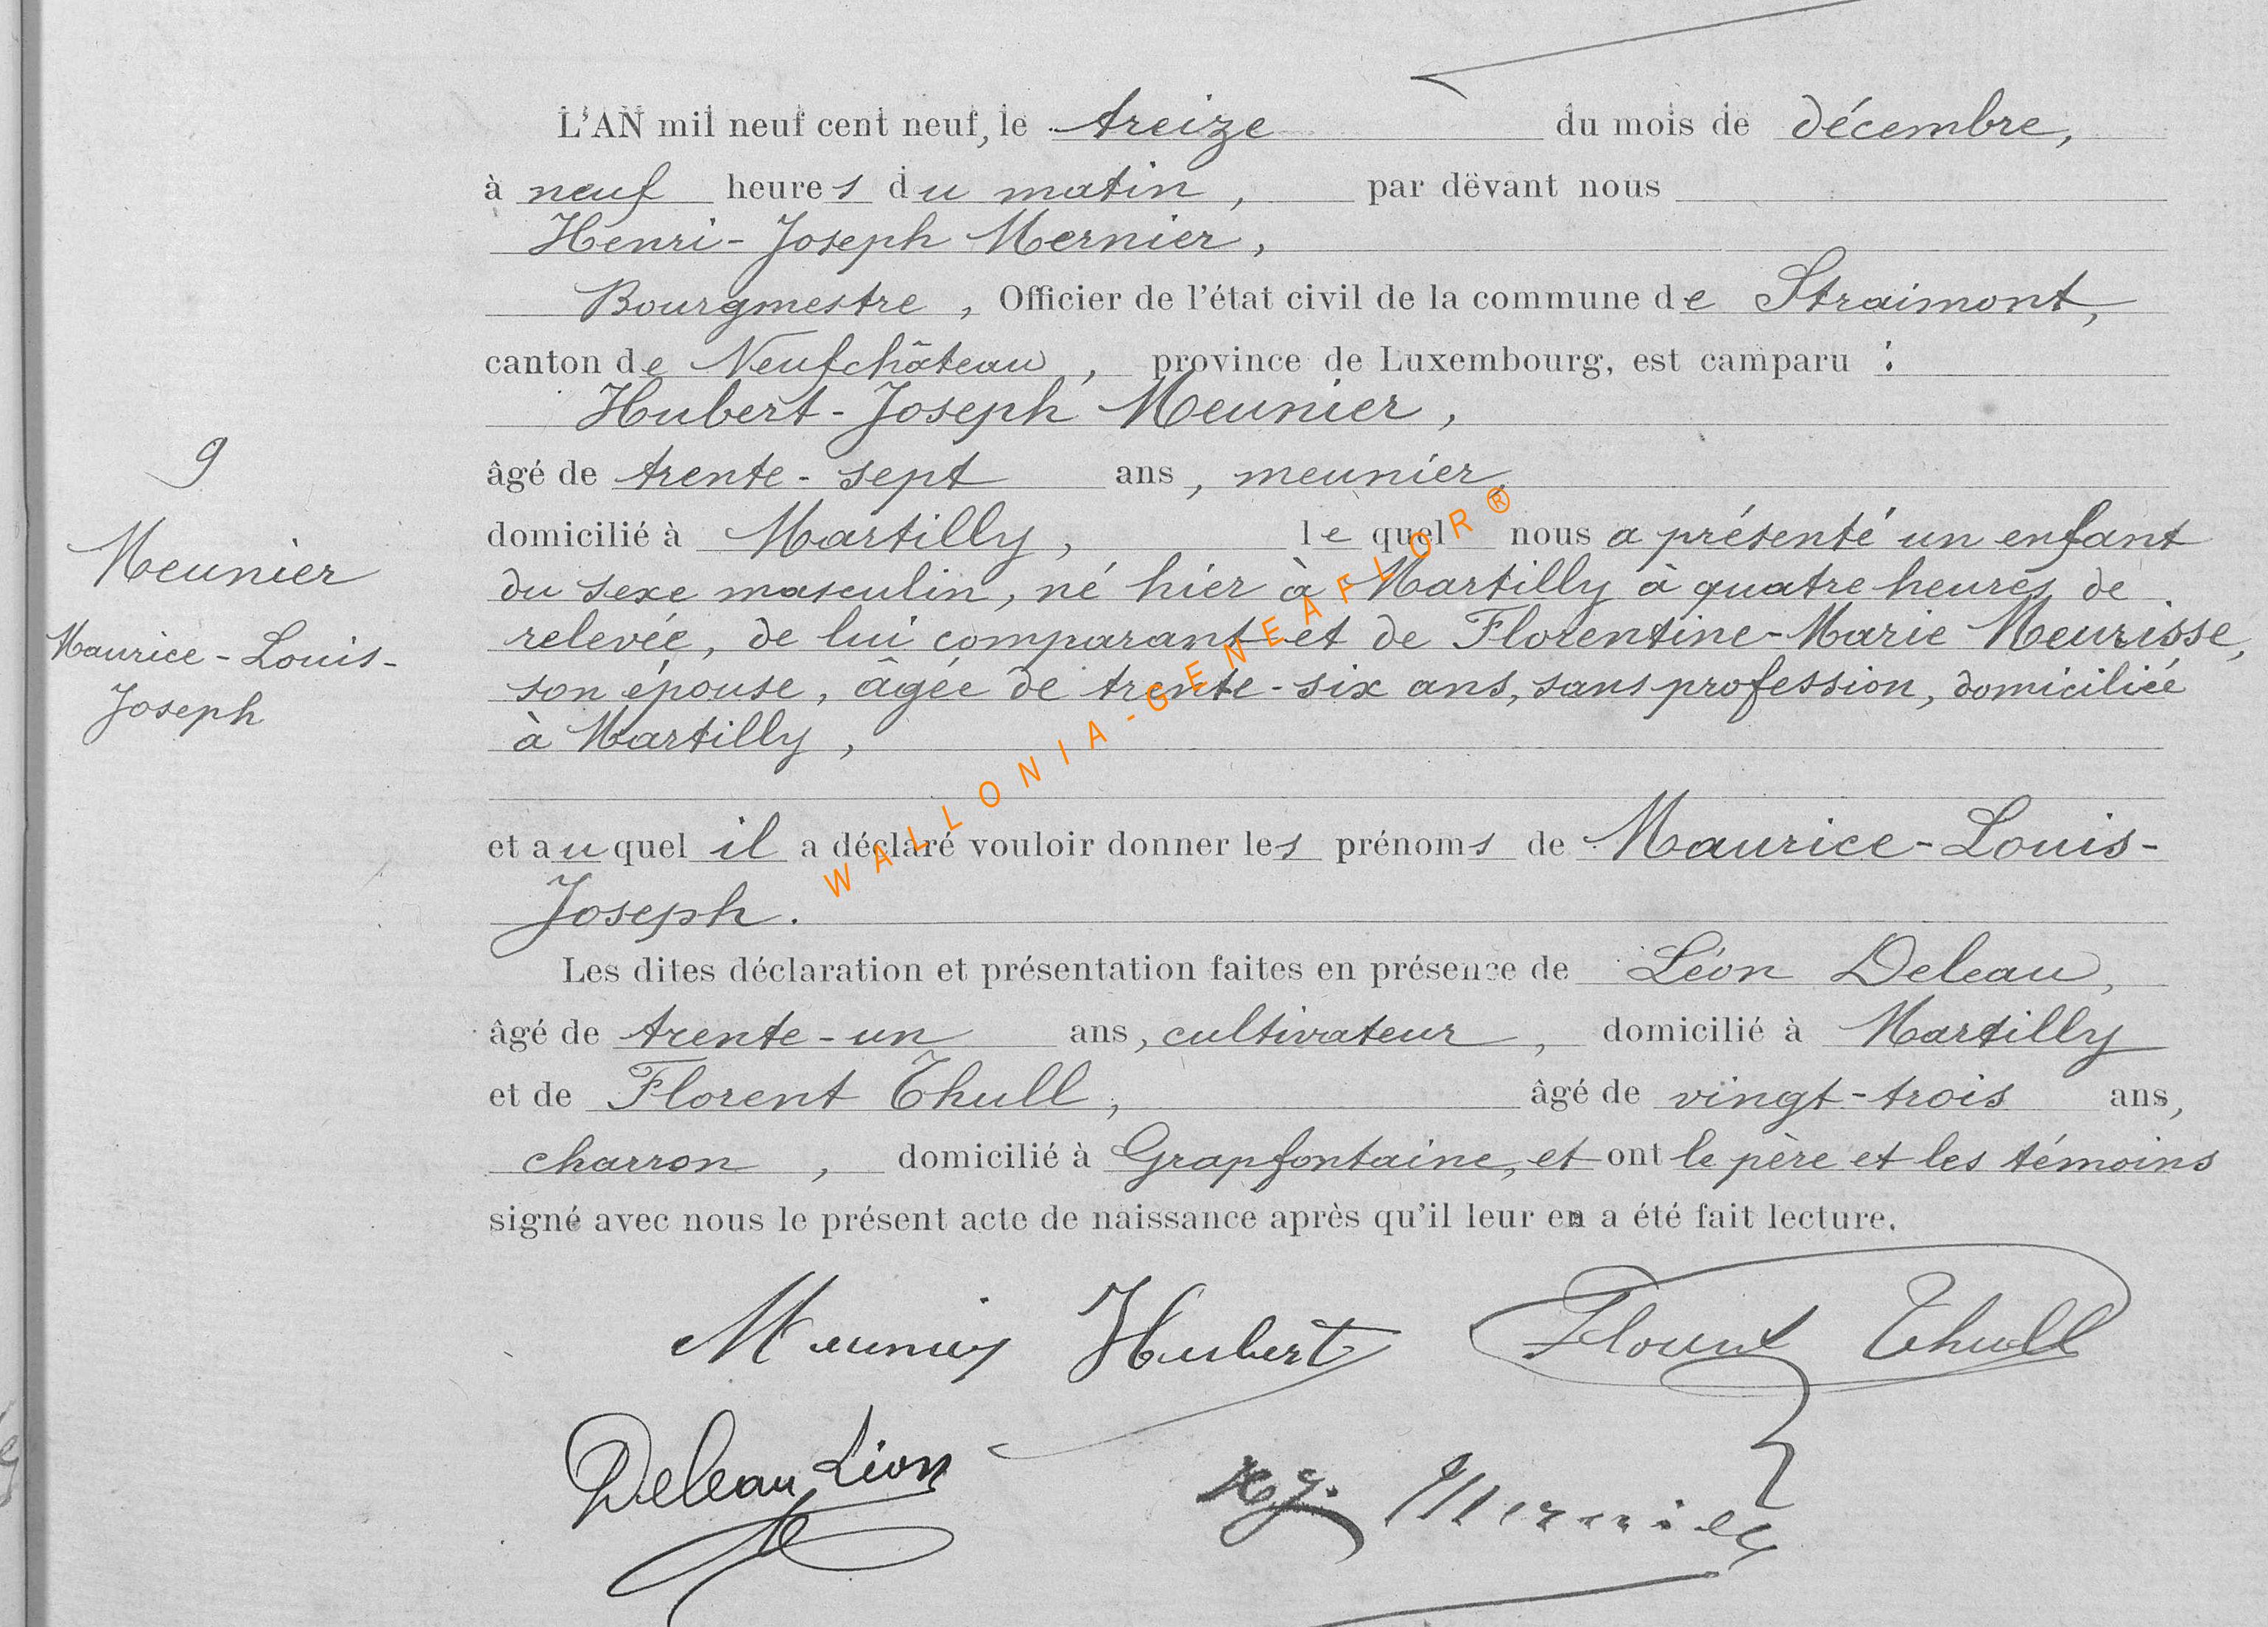 L'AN mil neuf cent neuf, le treize du mois de décembre,
à neuf heures du matin, par dëvant nous
Henri-Joseph Mernier,
Bourgmestre, Officier de l'état civil de la commune de Straimont,
canton de Neufchâteau, province de Luxembourg, est camparu :
Hubert-Joseph Meunier,
9
âgé de trente-sept ans, meunier,
domicilié à Martilly, le quel nous a présenté un enfant
Meunier
du sexe masculin, né hier à Martilly à quatre heures de
relevée, de lui comparant et de Florentine-Marie Meurisse,
Maurice-Louis-
son épouse, âgée de trente-six ans, sans profession, domiciliée
Joseph
à Martilly,
WALLONIA-GENEAFLOR®
et au quel il a déclaré vouloir donner les prénoms de Maurice-Louis-
Joseph.
Les dites déclaration et présentation faites en présence de Léon Deleau,
âgé de trente-un ans, cultivateur, domicilié à Martilly
et de Florent Thull, âgé de vingt-trois ans,
charron, domicilié à Grapfontaine, et ont le père et les témoins
signé avec nous le présent acte de naissance après qu'il leur en a été fait lecture.
Meunier Hubert Florent Thull
Deleau Léon
H.J. Mernier